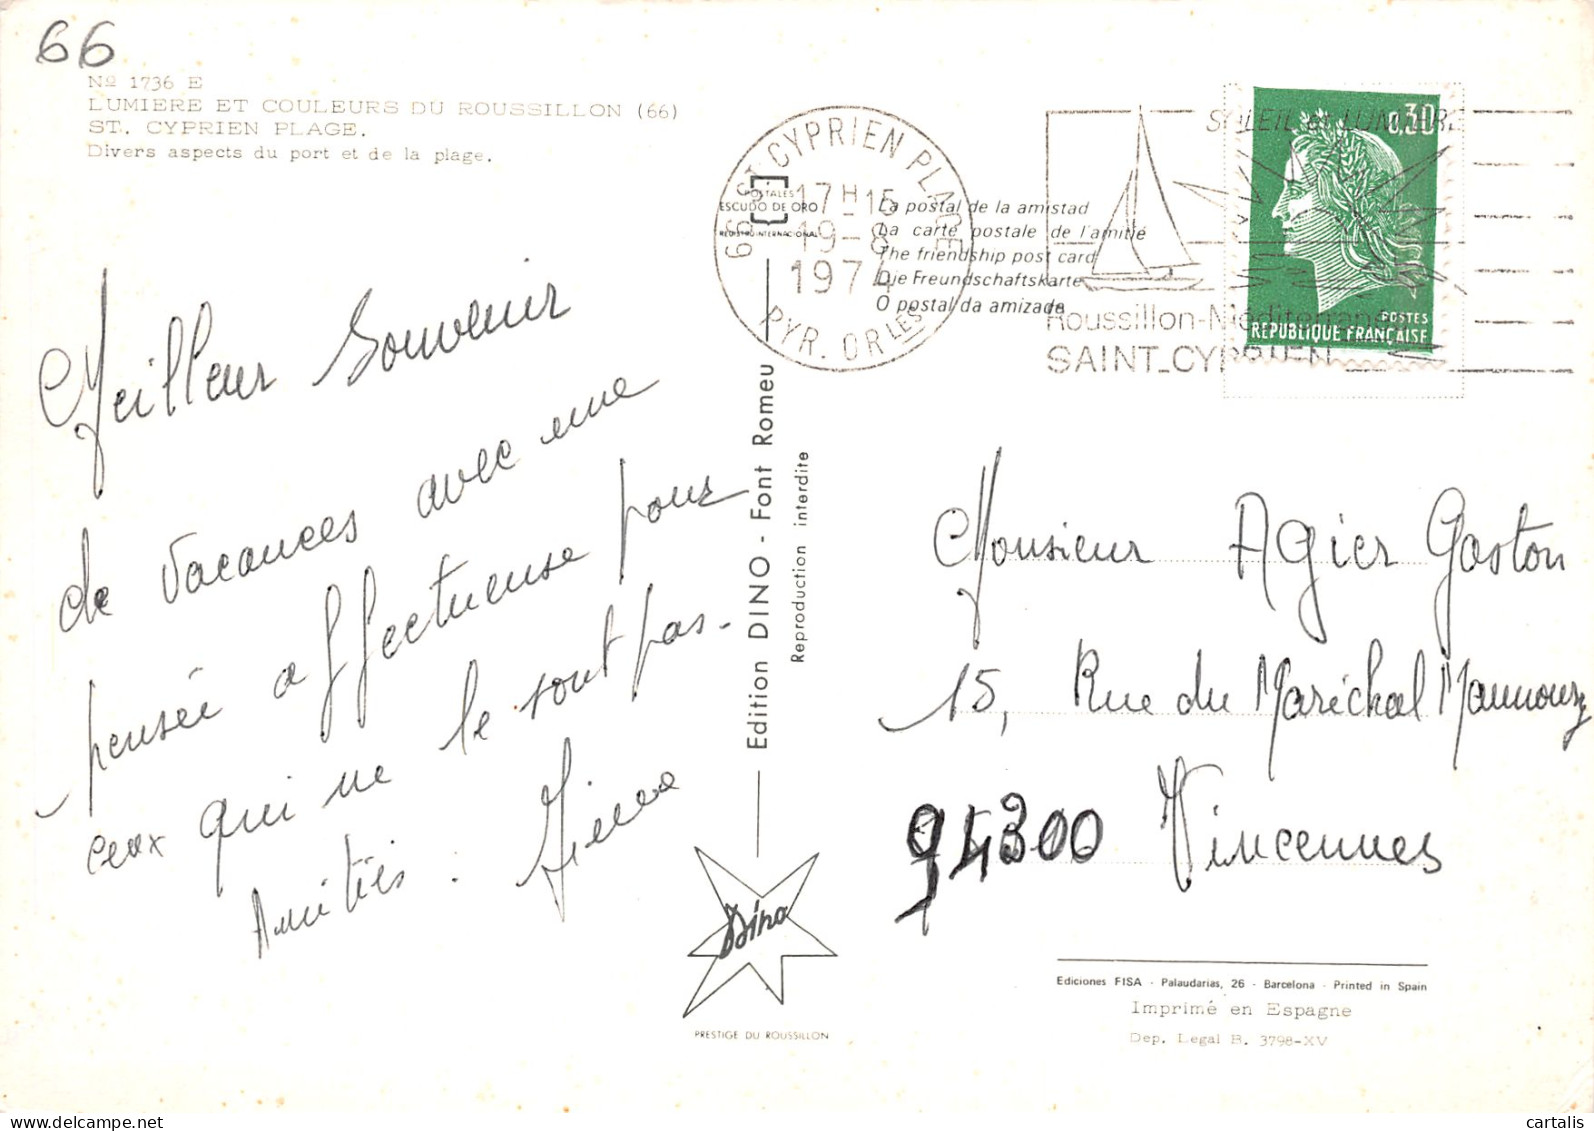 66
Nº 1736 E
LUMIERE ET COULEURS DU ROUSSILLON (66)
ST. CYPRIEN PLAGE.
Divers aspects du port et de la plage.
66 ST CYPRIEN PLAGE
17 H 15
19-8
1974
PYR. OR LES
POSTALES
ESCUDO DE ORO
REGISTRO INTERNACIONAL
La postal de la amistad
La carte postale de l'amitié
The friendship post card
Die Freundschaftskarte
O postal da amizade
SOLEIL et LUMIERE
Roussillon-Méditerranée
SAINT-CYPRIEN
0,30
POSTES
REPUBLIQUE FRANÇAISE
Meilleur Souvenir
de vacances avec une
pensée affectueuse pour
ceux qui ne le sont pas.
Amitiés :
Edition DINO - Font Romeu
Reproduction interdite
Dino
PRESTIGE DU ROUSSILLON
Monsieur Agier Gaston
15, Rue du Maréchal Maunoury
94300 Vincennes
Ediciones FISA - Palaudarias, 26 - Barcelona - Printed in Spain
Imprimé en Espagne
Dep. Legal B. 3798-XV
cartalis